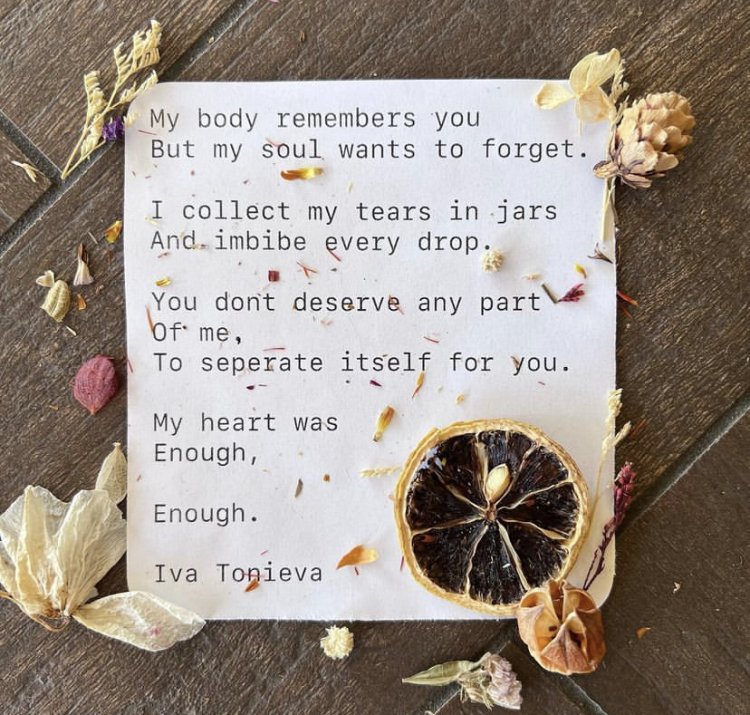 My body remembers you
But my soul wants to forget.
I collect my tears in jars
And imbibe every drop.
You dont deserve any part
Of me,
To seperate itself for you.
My heart was
Enough,
Enough.
Iva Tonieva